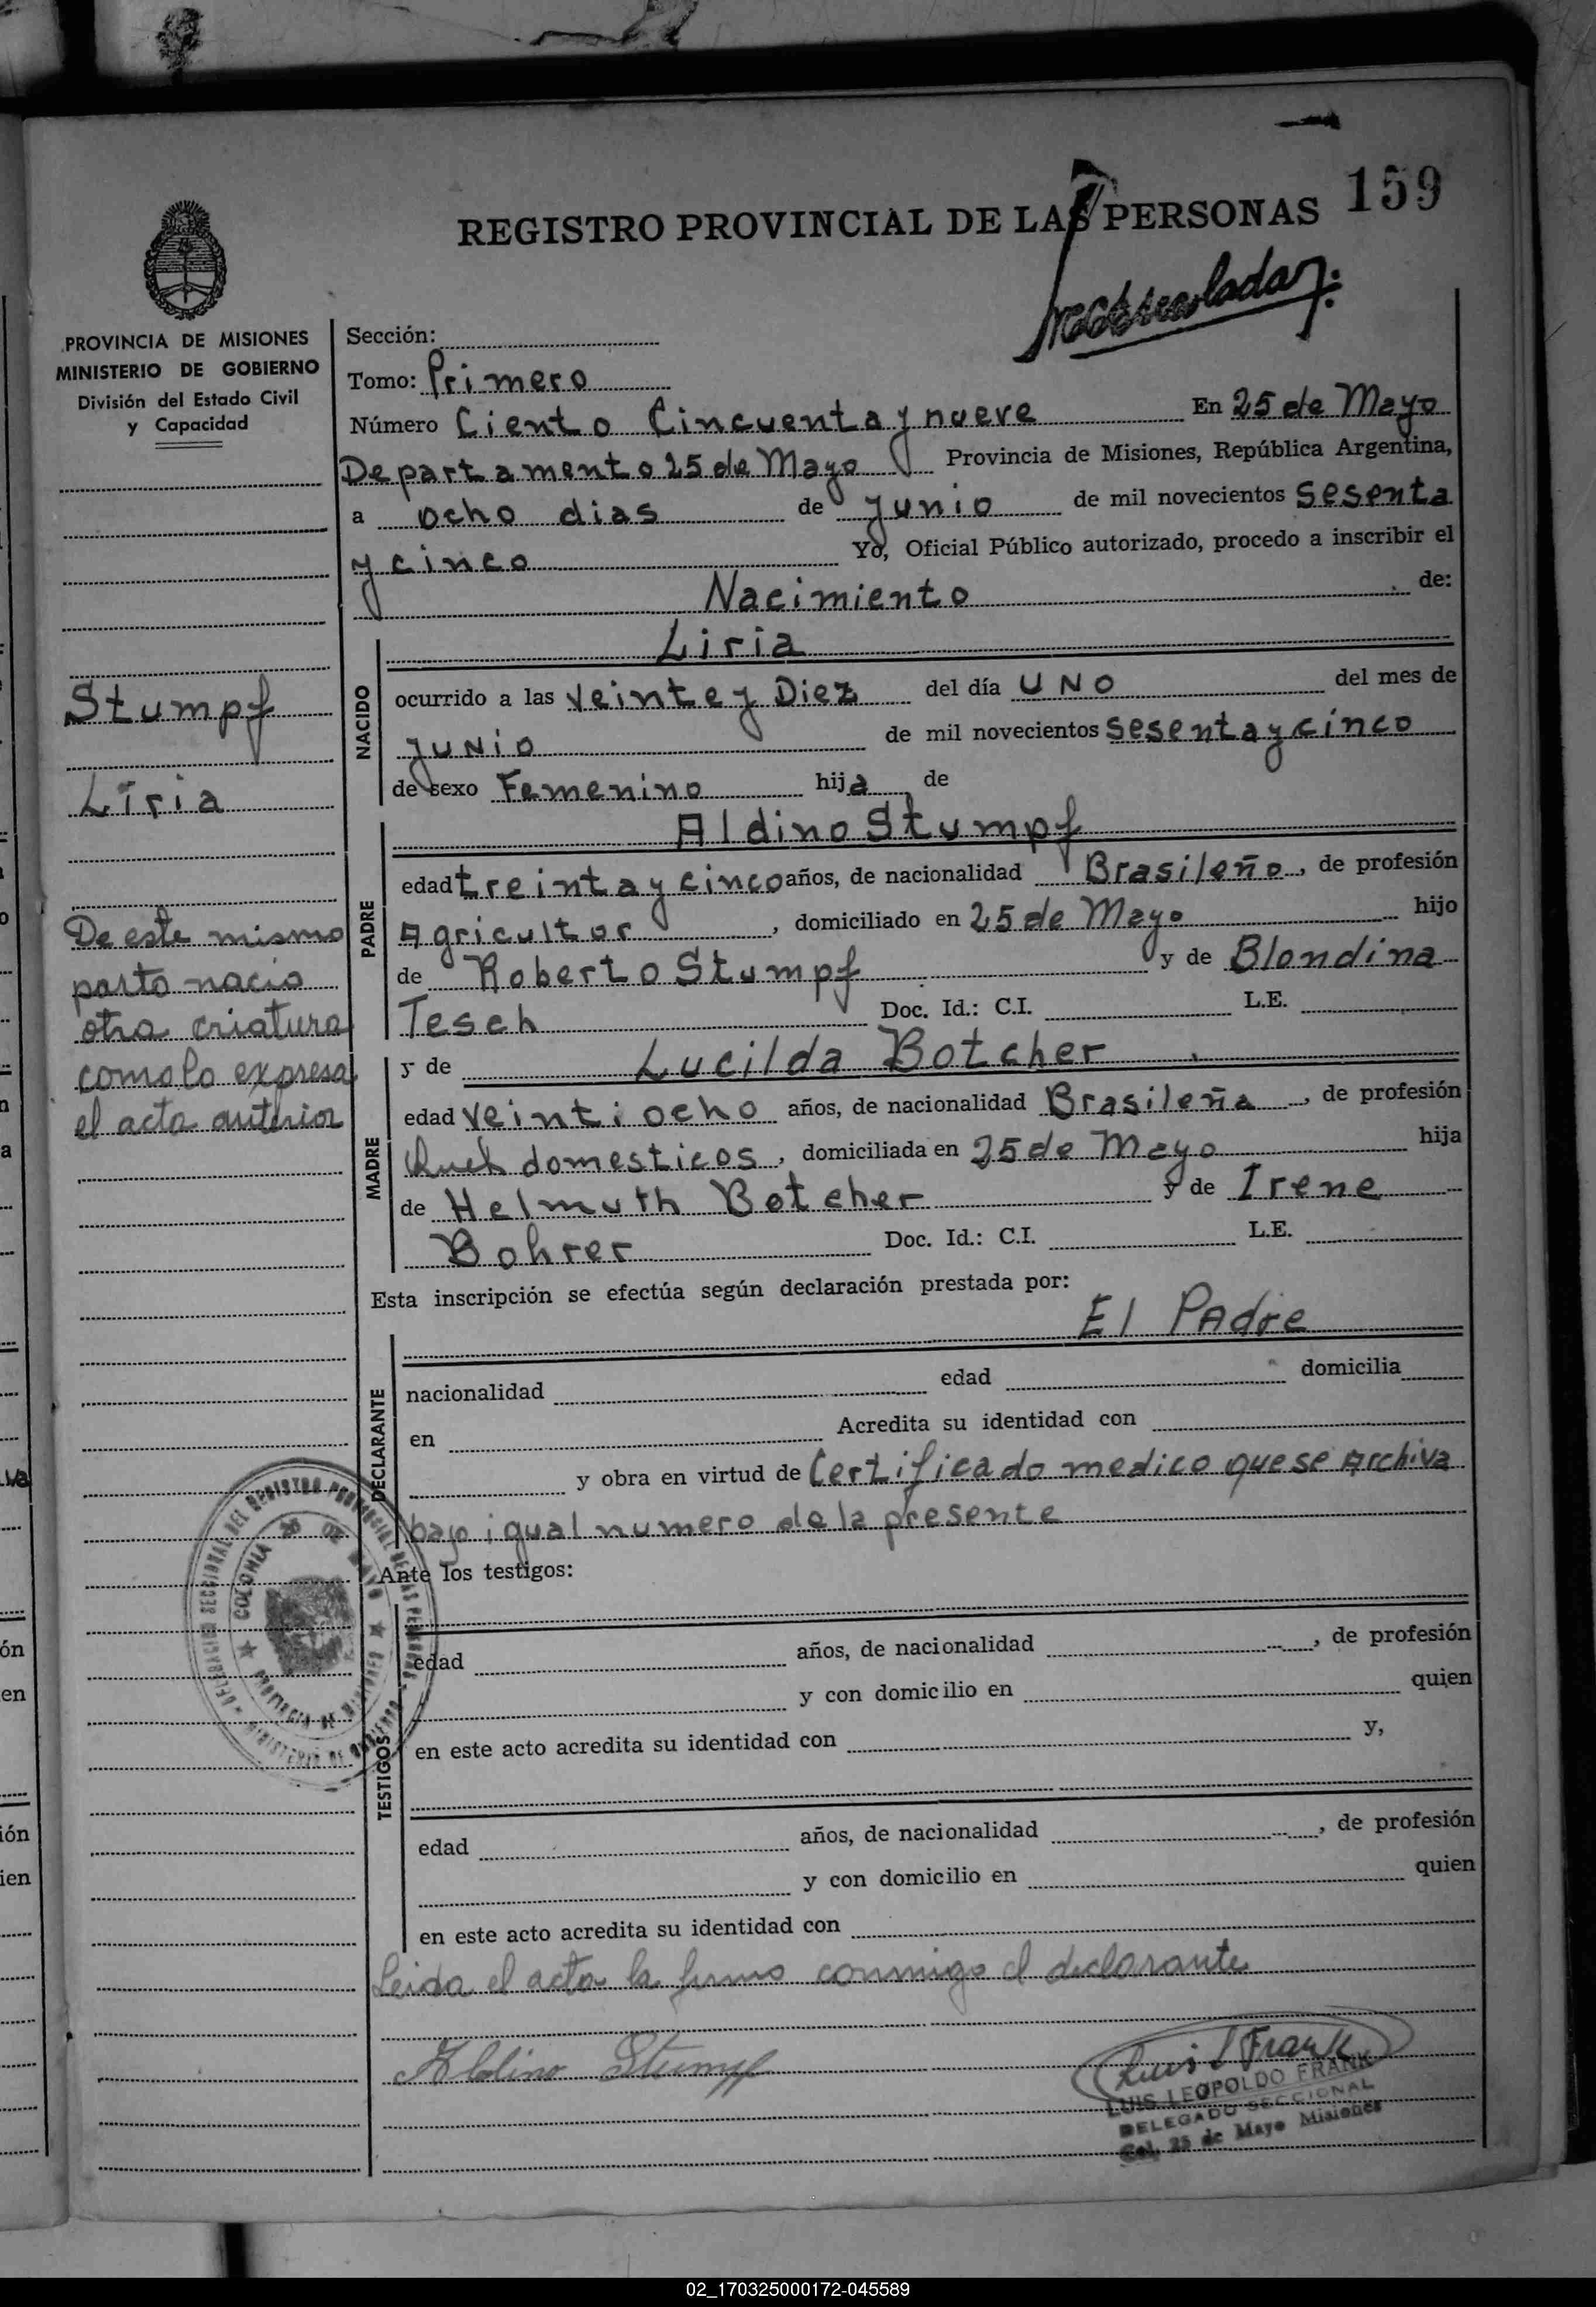 REGISTRO PROVINCIAL DE LAS PERSONAS 159
PROVINCIA DE MISIONES
MINISTERIO DE GOBIERNO
División del Estado Civil
y Capacidad
Stumpf
Liria
De este mismo
parto nacio
otra criatura
como lo expresa
el acta anterior
Sección:
Tomo: Primero
Número Ciento Cincuenta y nueve En 25 de Mayo
Departamento 25 de Mayo Provincia de Misiones, República Argentina,
a ocho dias de junio de mil novecientos sesenta
y cinco Yo, Oficial Público autorizado, procedo a inscribir el
Nacimiento de:
Liria
NACIDO
ocurrido a las veinte y Diez del día UNO del mes de
junio de mil novecientos sesenta y cinco
de sexo Femenino hija de
Aldino Stumpf
PADRE
edad treinta y cinco años, de nacionalidad Brasileño, de profesión
Agricultor, domiciliado en 25 de Mayo hijo
de Roberto Stumpf y de Blondina
Tesch Doc. Id.: C.I. L.E.
y de Lucilda Botcher
MADRE
edad veinti ocho años, de nacionalidad Brasileña, de profesión
domesticos, domiciliada en 25 de Mayo hija
de Helmuth Botcher y de Irene
Bohrer Doc. Id.: C.I. L.E.
Esta inscripción se efectúa según declaración prestada por:
El PAdre
DECLARANTE
nacionalidad edad domicilia
en Acredita su identidad con
y obra en virtud de Certificado medico que se Archiva
bajo igual numero de la presente
Ante los testigos:
TESTIGOS
edad años, de nacionalidad , de profesión
y con domicilio en quien
en este acto acredita su identidad con y,
edad años, de nacionalidad , de profesión
y con domicilio en quien
en este acto acredita su identidad con
Leida el acta la firma conmigo el declarante
Aldino Stumpf
Luis L Frank
LUIS LEOPOLDO FRANK
DELEGADO SECCIONAL
Col. 25 de Mayo Misiones
02_170325000172-045589